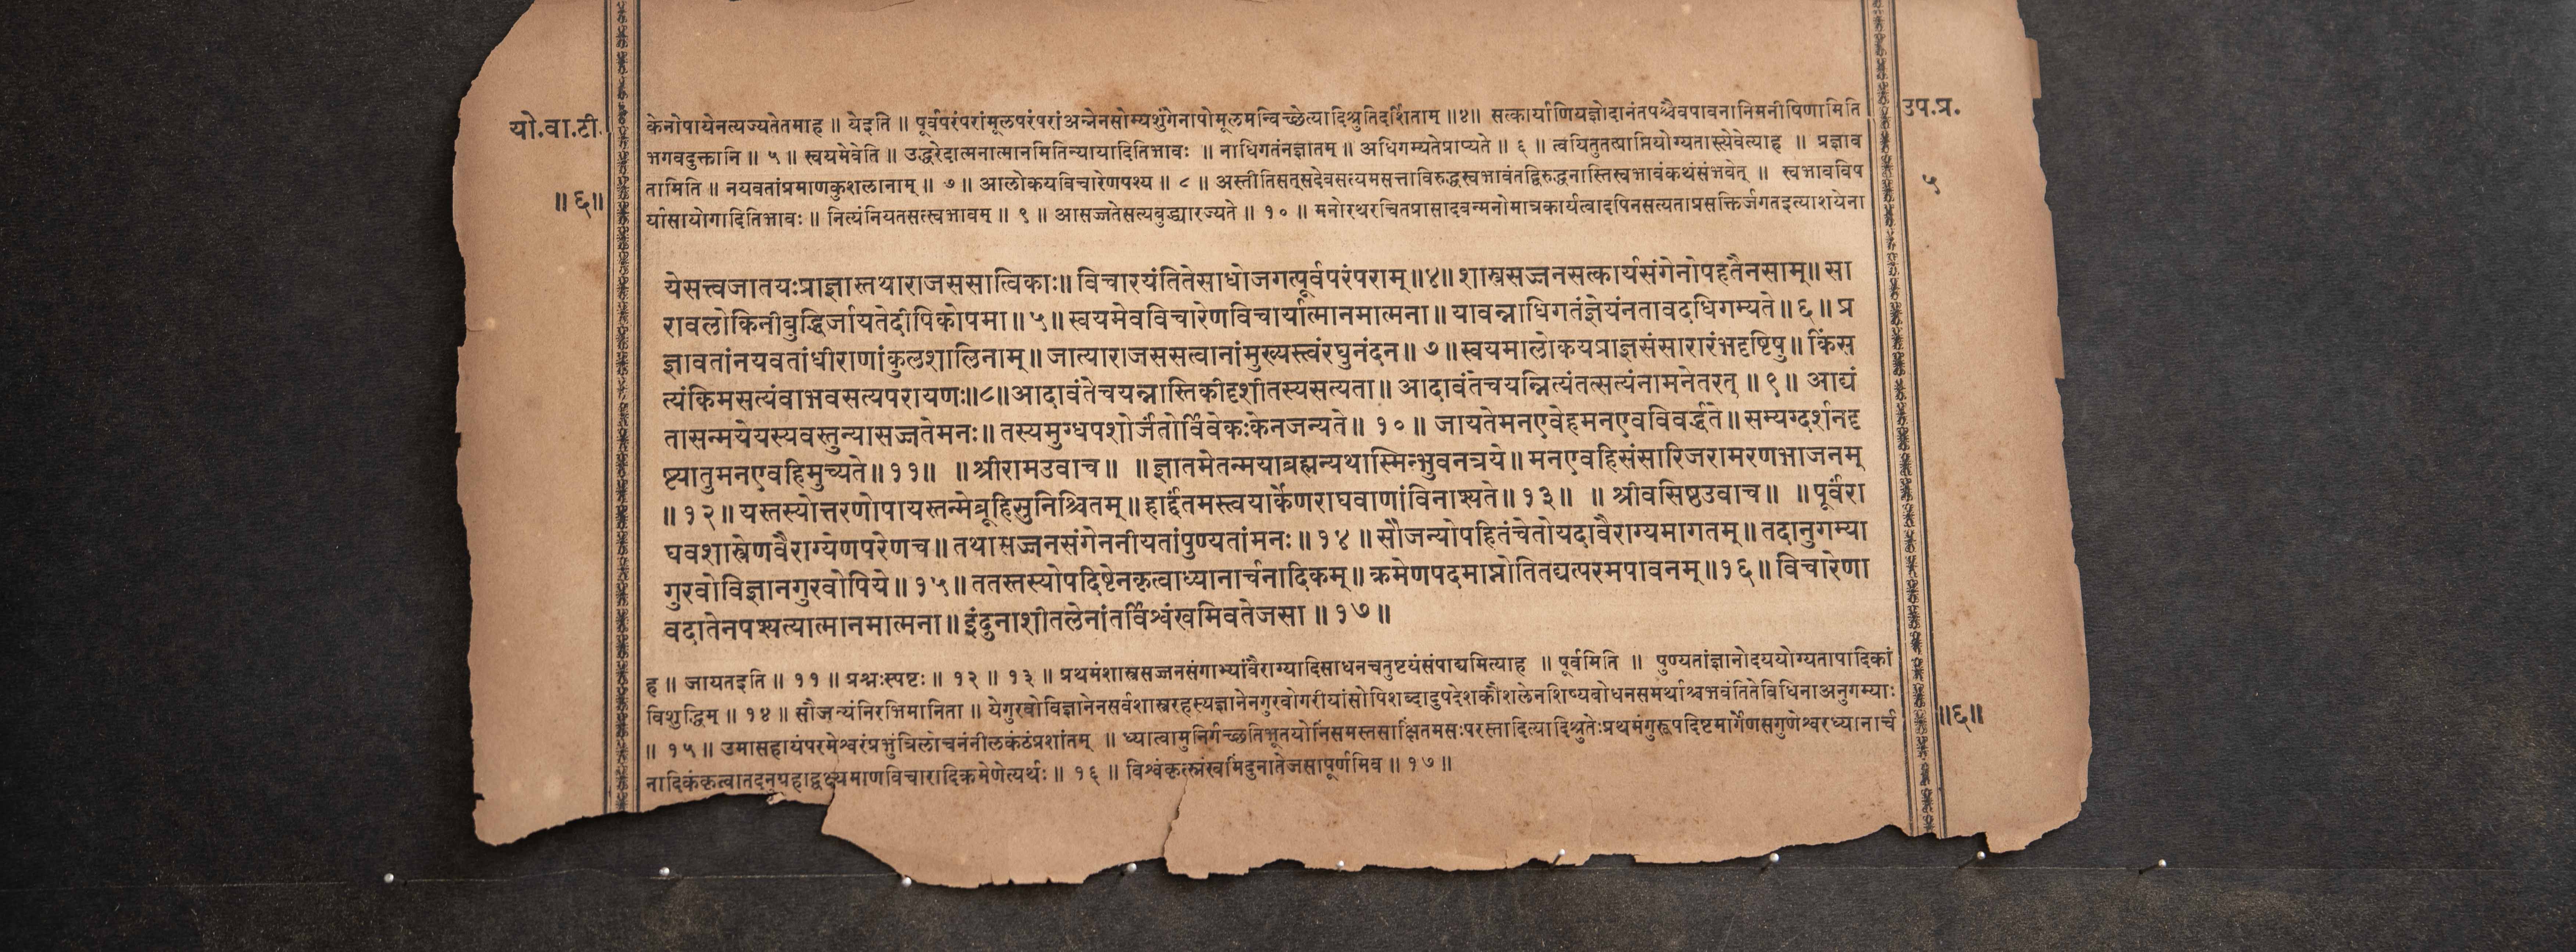 यो.वा.टी.
॥६॥
उप.प्र.
५
केनोपायेनत्यज्यतेतमाह ॥ येइति ॥ पूर्वपरंपरांमूलपरंपरांअन्नेनसोम्यशुंगेनापोमूलमन्विच्छेत्यादिश्रुतिदर्शिताम् ॥४॥ सत्कार्याणियज्ञोदानंतपश्चैवपावनानिमनीषिणामिति
भगवदुक्तानि ॥ ५ ॥ स्वयमेवेति ॥ उद्धरेदात्मनात्मानमितिन्यायादितिभावः ॥ नाधिगतंनज्ञातम् ॥ अधिगम्यतेप्राप्यते ॥ ६ ॥ त्वयितुतत्प्राप्तियोग्यतास्त्येवेत्याह ॥ प्रज्ञाव
तामिति ॥ नयवतांप्रमाणकुशलानाम् ॥ ७ ॥ आलोकयविचारेणपश्य ॥ ८ ॥ अस्तीतिसत्सदेवसत्यमसत्ताविरुद्धस्वभावंतद्विरुद्धनास्तिस्वभावंकथंसंभवेत् ॥ स्वभावविप
र्यासायोगादितिभावः ॥ नित्यंनियतसत्स्वभावम् ॥ ९ ॥ आसज्जतेसत्यबुद्ध्यारज्यते ॥ १० ॥ मनोरथरचितप्रासादवन्मनोमात्रकार्यत्वादपिनसत्यताप्रसक्तिर्जगतइत्याशयेना
येसत्त्वजातयःप्राज्ञास्तथाराजससात्विकाः॥ विचारयंतितेसाधोजगत्पूर्वपरंपराम्॥४॥ शास्त्रसज्जनसत्कार्यसंगेनोपहतैनसाम्॥ सा
रावलोकिनीबुद्धिर्जायतेदीपिकोपमा॥ ५॥ स्वयमेवविचारेणविचार्यात्मानमात्मना॥ यावन्नाधिगतंज्ञेयंनतावदधिगम्यते॥ ६॥ प्र
ज्ञावतांनयवतांधीराणांकुलशालिनाम्॥ जात्याराजससत्वानांमुख्यस्त्वंरघुनंदन॥ ७॥ स्वयमालोकयप्राज्ञसंसारारंभदृष्टिषु॥ किंस
त्यंकिमसत्यंवाभवसत्यपरायणः॥८॥ आदावंतेचयन्नास्तिकीदृशीतस्यसत्यता॥ आदावंतेचयन्नित्यंतत्सत्यंनामनेतरत् ॥ ९॥ आद्यं
तासन्मयेयस्यवस्तुन्यासज्जतेमनः॥ तस्यमुग्धपशोर्जंतोर्विवेकःकेनजन्यते॥ १०॥ जायतेमनएवेहमनएवविवर्द्धते॥ सम्यग्दर्शनदृ
ष्ट्यातुमनएवहिमुच्यते॥ ११॥ ॥ श्रीरामउवाच॥ ॥ ज्ञातमेतन्मयाब्रह्मन्यथास्मिन्भुवनत्रये॥ मनएवहिसंसारिजरामरणभाजनम्
॥ १२॥ यस्तस्योत्तरणोपायस्तन्मेब्रूहिसुनिश्चितम्॥ हार्द्दंतमस्त्वयार्केणराघवाणांविनाश्यते॥ १३॥ ॥ श्रीवसिष्ठउवाच॥ ॥ पूर्वंरा
घवशास्त्रेणवैराग्येणपरेणच॥ तथासज्जनसंगेननीयतांपुण्यतांमनः॥ १४ ॥ सौजन्योपहितंचेतोयदावैराग्यमागतम्॥ तदानुगम्या
गुरवोविज्ञानगुरवोपिये॥ १५॥ ततस्तस्योपदिष्टेनकृत्वाध्यानार्चनादिकम्॥ क्रमेणपदमाप्नोतितद्यत्परमपावनम्॥१६॥ विचारेणा
वदातेनपश्यत्यात्मानमात्मना॥ इंदुनाशीतलेनांतर्विश्वंखमिवतेजसा ॥ १७॥
ह ॥ जायतइति ॥ ११ ॥ प्रश्नःस्पष्टः ॥ १२ ॥ १३ ॥ प्रथमंशास्त्रसज्जनसंगाभ्यांवैराग्यादिसाधनचतुष्टयंसंपाद्यमित्याह ॥ पूर्वमिति ॥ पुण्यतांज्ञानोदययोग्यतापादिकां
विशुद्धिम् ॥ १४ ॥ सौजन्यंनिरभिमानिता ॥ येगुरवोविज्ञानेनसर्वशास्त्ररहस्यज्ञानेनगुरवोगरीयांसोपिशब्दादुपदेशकौशलेनशिष्यबोधनसमर्थाश्चभवंतितेविधिनाअनुगम्याः
॥ १५ ॥ उमासहायंपरमेश्वरंप्रभुंत्रिलोचनंनीलकंठंप्रशांतम् ॥ ध्यात्वामुनिर्गच्छतिभूतयोनिंसमस्तसाक्षिंतमसःपरस्तादित्यादिश्रुतेःप्रथमंगुरूपदिष्टमार्गेणसगुणेश्वरध्यानार्च
नादिकंकृत्वातदनुग्रहाद्वक्ष्यमाणविचारादिक्रमेणेत्यर्थः ॥ १६ ॥ विश्वंकृत्स्नंखमिंदुनातेजसापूर्णमिव ॥ १७ ॥
॥६॥